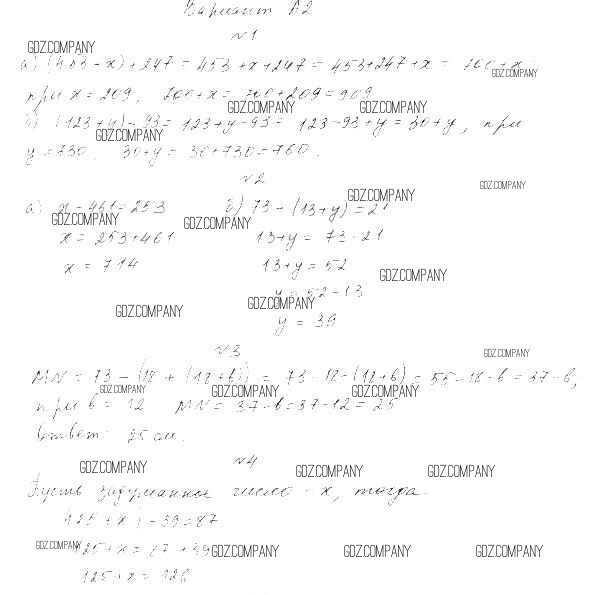 Вариант А2
№1
GDZ.COMPANY
а) (453 - x) + 247 = 453 + x + 247 = 453 + 247 + x = 700 + x
GDZ.COMPANY
при x = 209, 700 + x = 700 + 209 = 909
GDZ.COMPANY GDZ.COMPANY
б) (123 + y) - 93 = 123 + y - 93 = 123 - 93 + y = 30 + y, при
GDZ.COMPANY
y = 730, 30 + y = 30 + 730 = 760.
№2
GDZ.COMPANY
GDZ.COMPANY
а) x - 461 = 253 б) 73 - (13 + y) = 21
GDZ.COMPANY GDZ.COMPANY
x = 253 + 461 13 + y = 73 - 21
x = 714 13 + y = 52
GDZ.COMPANY
y = 52 - 13
GDZ.COMPANY GDZ.COMPANY
y = 39
№3
GDZ.COMPANY
MN = 73 - (18 + (18 + b)) = 73 - 18 - (18 + b) = 55 - 18 - b = 37 - b,
GDZ.COMPANY GDZ.COMPANY GDZ.COMPANY
при b = 12 MN = 37 - b = 37 - 12 = 25
Ответ: 25 см.
№4
GDZ.COMPANY GDZ.COMPANY GDZ.COMPANY
Пусть задуманное число - x, тогда
(125 + x) - 39 = 87
125 + x = 87 + 39
GDZ.COMPANY GDZ.COMPANY GDZ.COMPANY GDZ.COMPANY
125 + x = 126